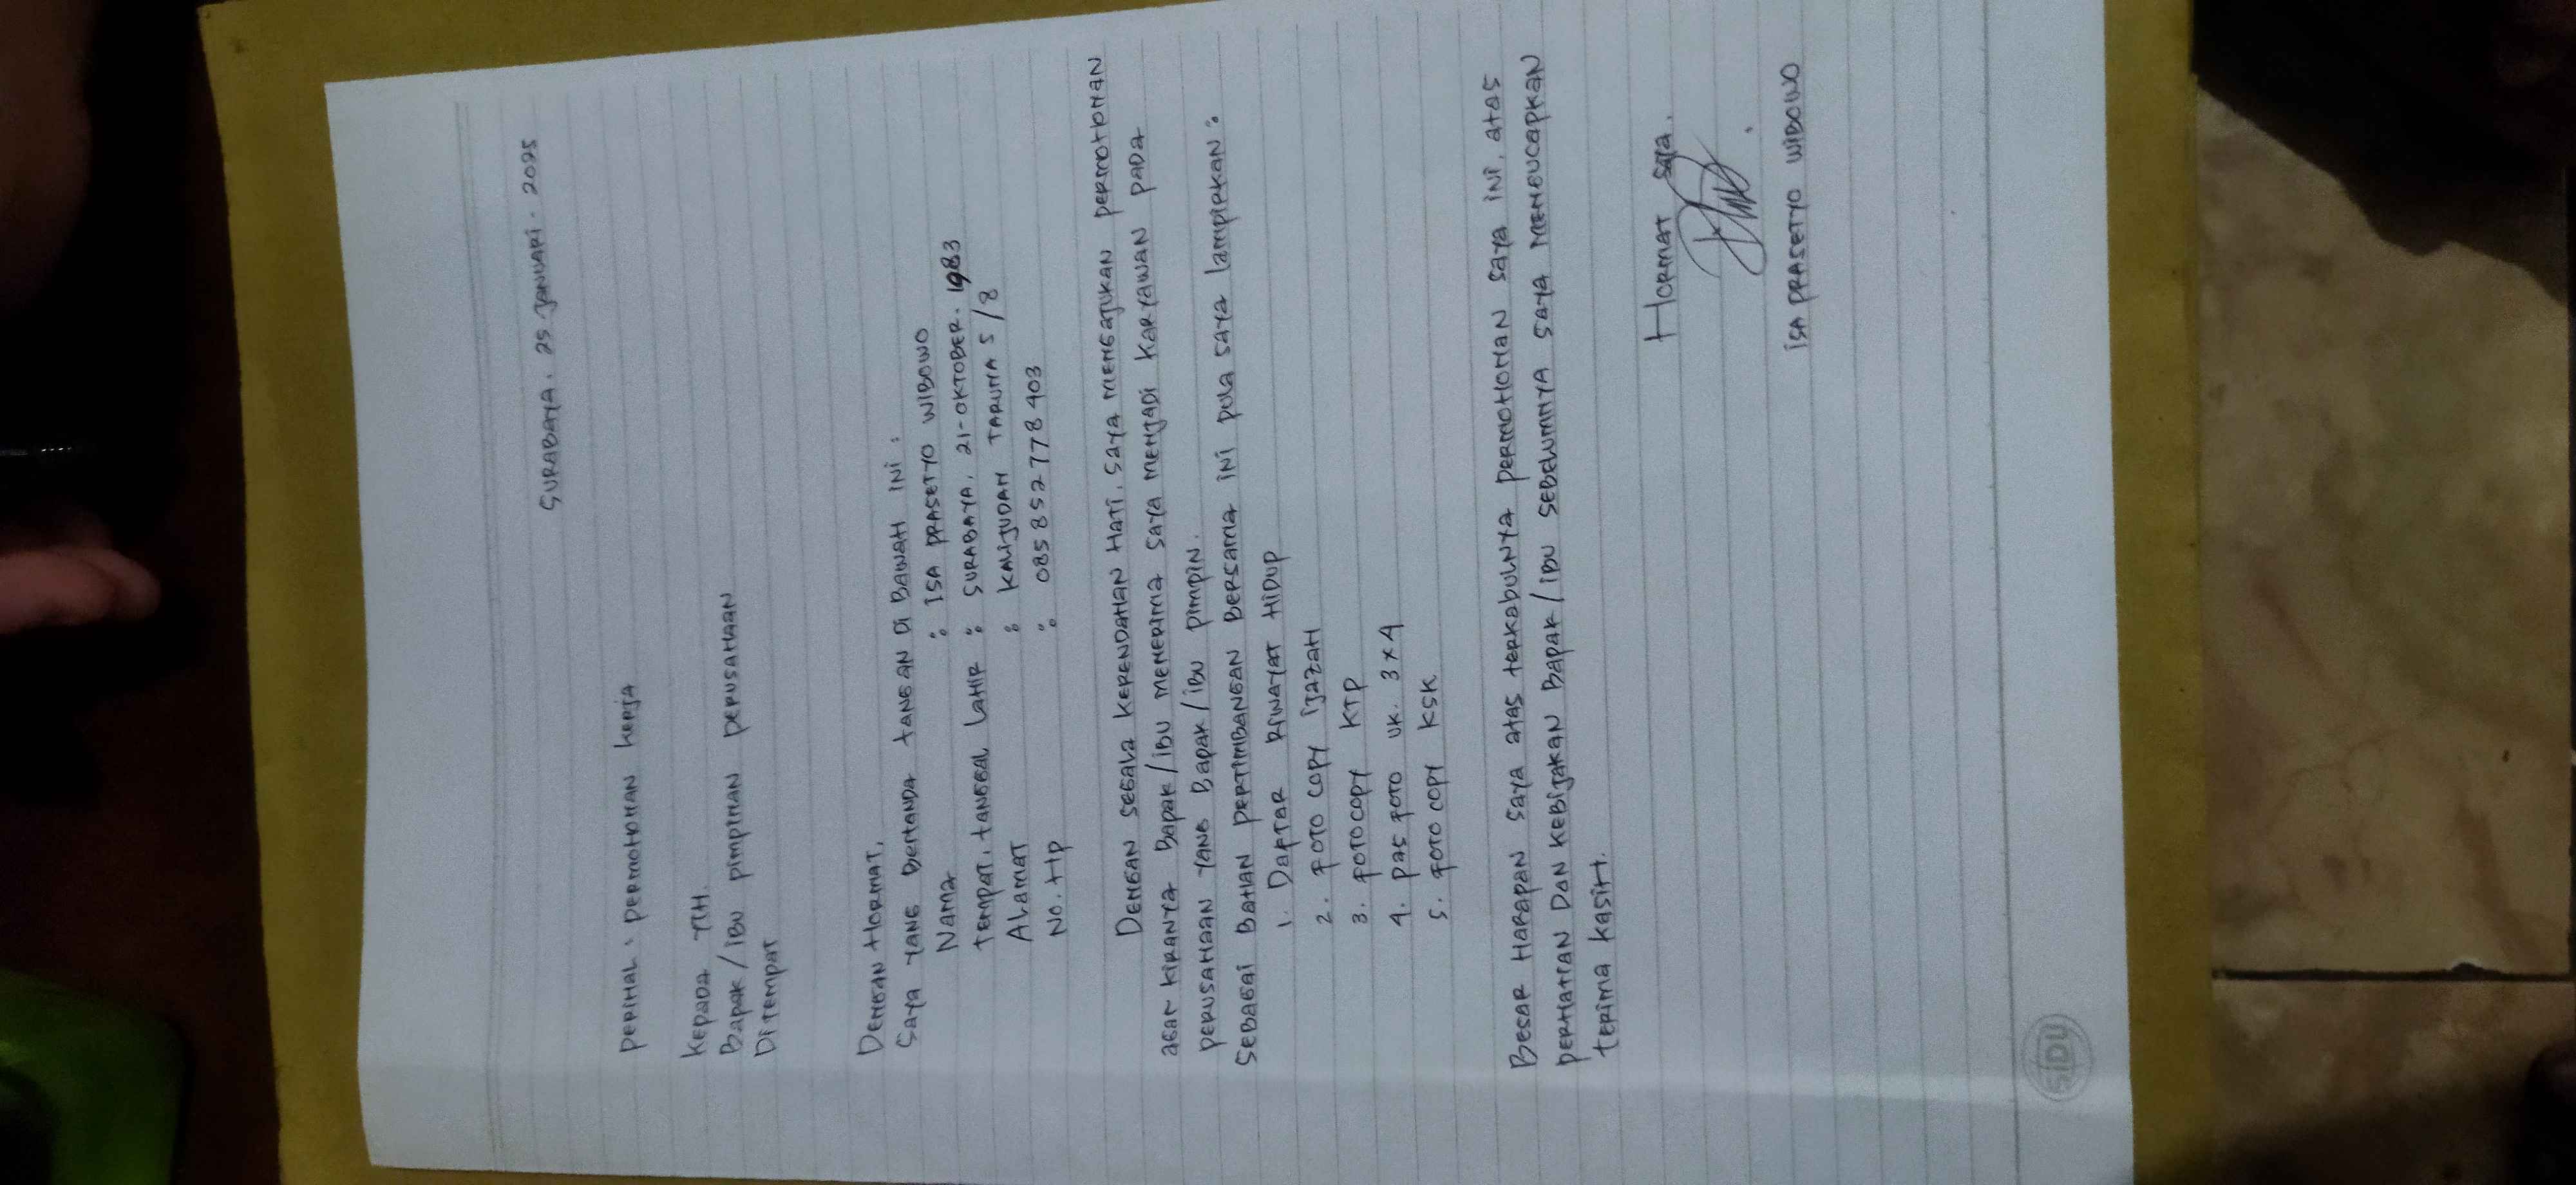 SURABAYA, 25 JANUARI. 2025
PERIHAL : PERMOHONAN KERJA
KEPADA YTH.
BAPAK/IBU PIMPINAN PERUSAHAAN
DITEMPAT
DENGAN HORMAT,
SAYA YANG BERTANDA TANGAN DI BAWAH INI :
NAMA : ISA PRASETYO WIBOWO
TEMPAT, TANGGAL LAHIR : SURABAYA, 21-OKTOBER. 1983
ALAMAT : KALIJUDAN TARUNA 5/8
NO. HP : 085 852 778 403
DENGAN SEGALA KERENDAHAN HATI, SAYA MENGAJUKAN PERMOHONAN
AGAR KIRANYA BAPAK/IBU MENERIMA SAYA MENJADI KARYAWAN PADA
PERUSAHAAN YANG BAPAK/IBU PIMPIN.
SEBAGAI BAHAN PERTIMBANGAN BERSAMA INI PULA SAYA LAMPIRKAN :
1. DAFTAR RIWAYAT HIDUP
2. FOTO COPY IJAZZAH
3. FOTOCOPY KTP
4. PAS FOTO UK. 3x4
5. FOTO COPY KSK
BESAR HARAPAN SAYA ATAS TERKABULNYA PERMOHONAN SAYA INI, ATAS
PERHATIAN DAN KEBIJAKAN BAPAK/IBU SEBELUMNYA SAYA MENGUCAPKAN
TERIMA KASIH.
HORMAT SAYA.
ISA PRASETYO WIBOWO
SIDU